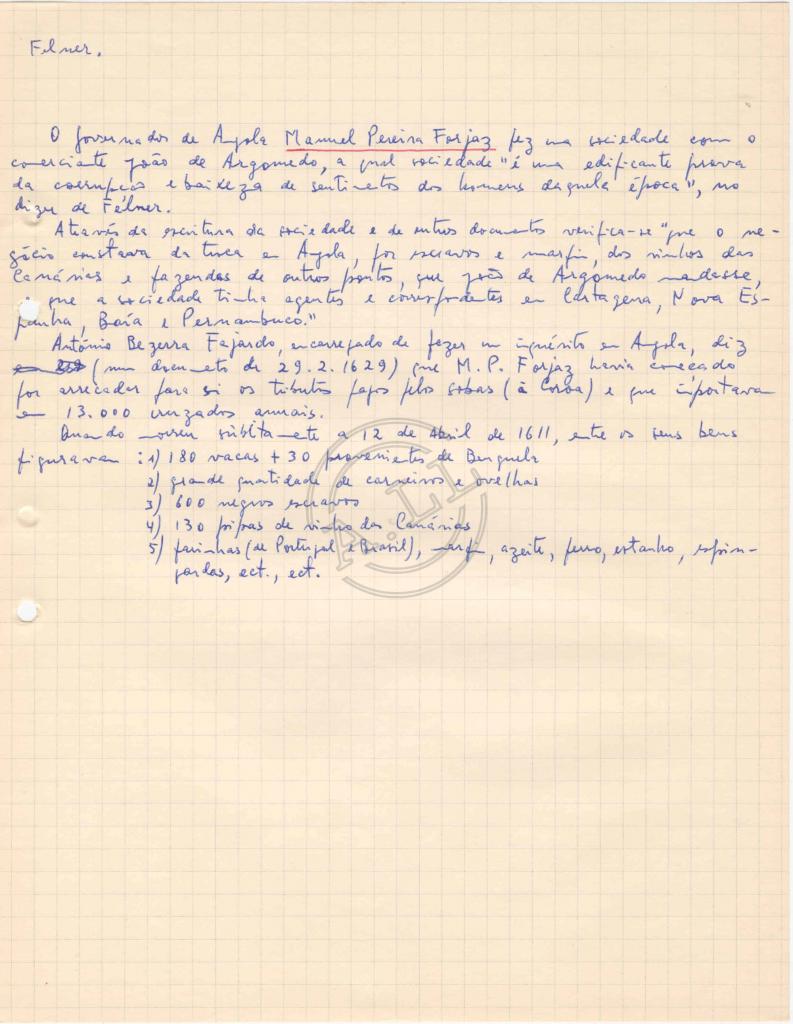 Felner.
O governador de Angola Manuel Pereira Forjaz fez uma sociedade com o
comerciante João de Argomedo, a qual sociedade "é uma edificante prova
da corrupção e baixeza de sentimentos dos homens daquela época", no
dizer de Félner.
Através da escritura da sociedade e de outros documentos verifica-se "que o ne-
gócio constava da troca em Angola, por escravos e marfim, dos vinhos das
Canárias e fazendas de outros pontos, que João de Argomedo mandasse,
e que a sociedade tinha agentes e correspondentes em Cartagena, Nova Es-
panha, Baía e Pernambuco."
António Bezerra Fajardo, encarregado de fazer um inquérito em Angola, diz
(num documento de 29.2.1629) que M. P. Forjaz havia começado
por arrecadar para si os tributos pagos pelos sobas (à Coroa) e que importavam
em 13.000 cruzados anuais.
Quando morreu súbitamente a 12 de Abril de 1611, entre os seus bens
figuravam : 1) 180 vacas + 30 provenientes de Benguela
2) grande quantidade de carneiros e ovelhas
3) 600 negros escravos
4) 130 pipas de vinho das Canárias
5) farinhas (de Portugal e Brasil), marfim, azeite, ferro, estanho, espin-
gardas, ect., ect.
A. LL